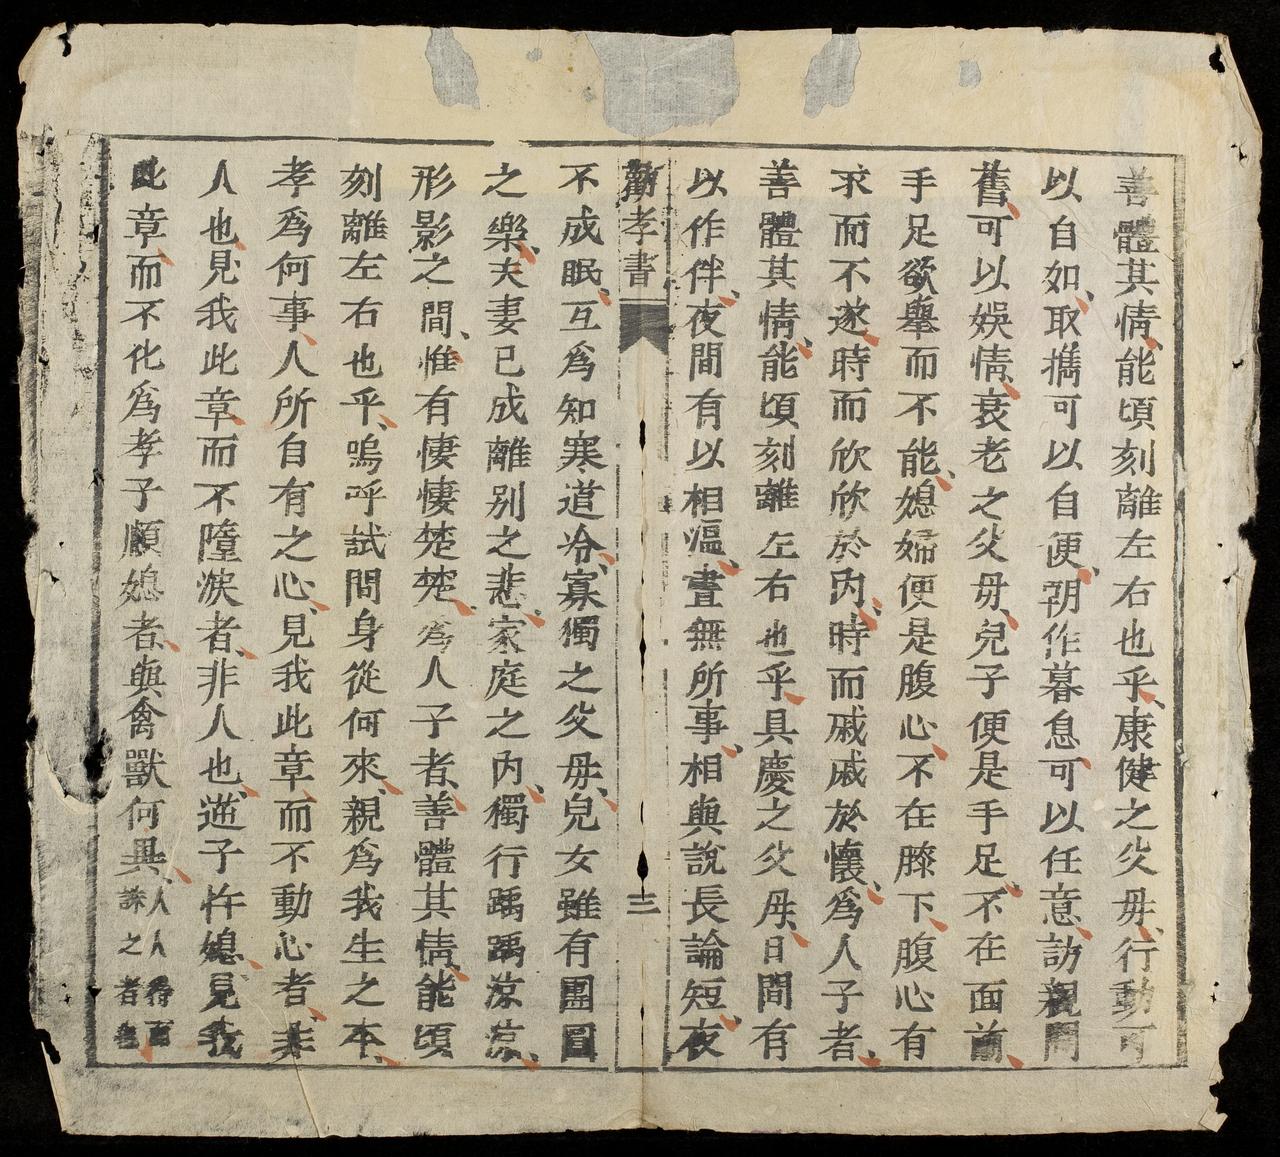 善體其情能頃刻離左右也乎康健之父母行動可
以自如取携可以自便朝作暮息可以任意訪親問
舊可以娛情衰老之父母兒子便是手足不在面前
手足欲舉而不能媳婦便是腹心不在膝下腹心有
求而不遂時而欣欣於內時而戚戚於懷為人子者
善體其情能頃刻離左右也乎具慶之父母日間有
以作伴夜間有以相溫晝無所事相與說長論短夜
勸孝書
三
不成眠互為知寒道冷寡獨之父母兒女雖有團圓
之樂夫妻已成離别之悲家庭之內獨行踽踽涼涼
形影之間惟有悽悽楚楚為人子者善體其情能頃
刻離左右也乎嗚呼試問身從何來親為我生之本
孝為何事人所自有之心見我此章而不動心者非
人也見我此章而不墮淚者非人也逆子忤媳見我
此章而不化為孝子順媳者與禽獸何異人人得而
誅之者也